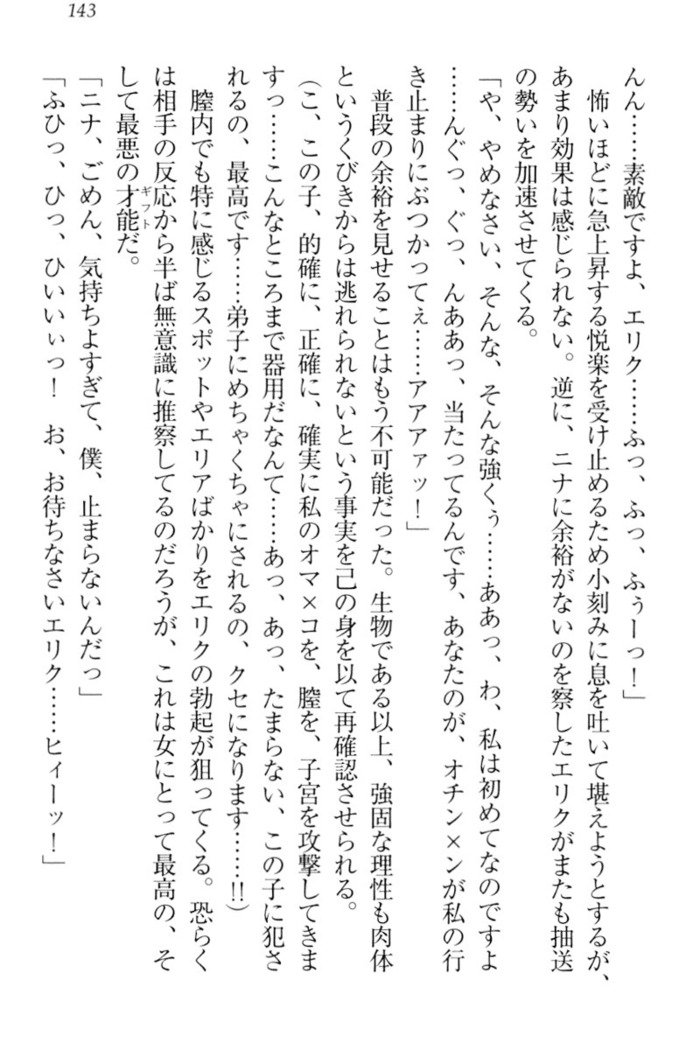 143
んん……素敵ですよ、エリク……ふっ、ふっ、ふぅーっ！」
怖いほどに急上昇する悦楽を受け止めるため小刻みに息を吐いて堪えようとするが、
あまり効果は感じられない。逆に、ニナに余裕がないのを察したエリクがまたも抽送
の勢いを加速させてくる。
「や、やめなさい、そんな、そんな強くぅ……ああっ、わ、私は初めてなのですよ
……んぐっ、ぐっ、んああっ、当たってるんです、あなたのが、オチン×ンが私の行
き止まりにぶつかってぇ……アアアァッ！」
普段の余裕を見せることはもう不可能だった。生物である以上、強固な理性も肉体
というくびきからは逃れられないという事実を己の身を以て再確認させられる。
（こ、この子、的確に、正確に、確実に私のオマ×コを、膣を、子宮を攻撃してきま
すっ……こんなところまで器用だなんて……あっ、あっ、たまらない、この子に犯さ
れるの、最高です……弟子にめちゃくちゃにされるの、クセになります……!!）
膣内でも特に感じるスポットやエリアばかりをエリクの勃起が狙ってくる。恐らく
は相手の反応から半ば無意識に推察してるのだろうが、これは女にとって最高の、そ
して最悪の才能ギフトだ。
「ニナ、ごめん、気持ちよすぎて、僕、止まらないんだっ」
「ふひっ、ひっ、ひいいぃっ！　お、お待ちなさいエリク……ヒィーッ！」